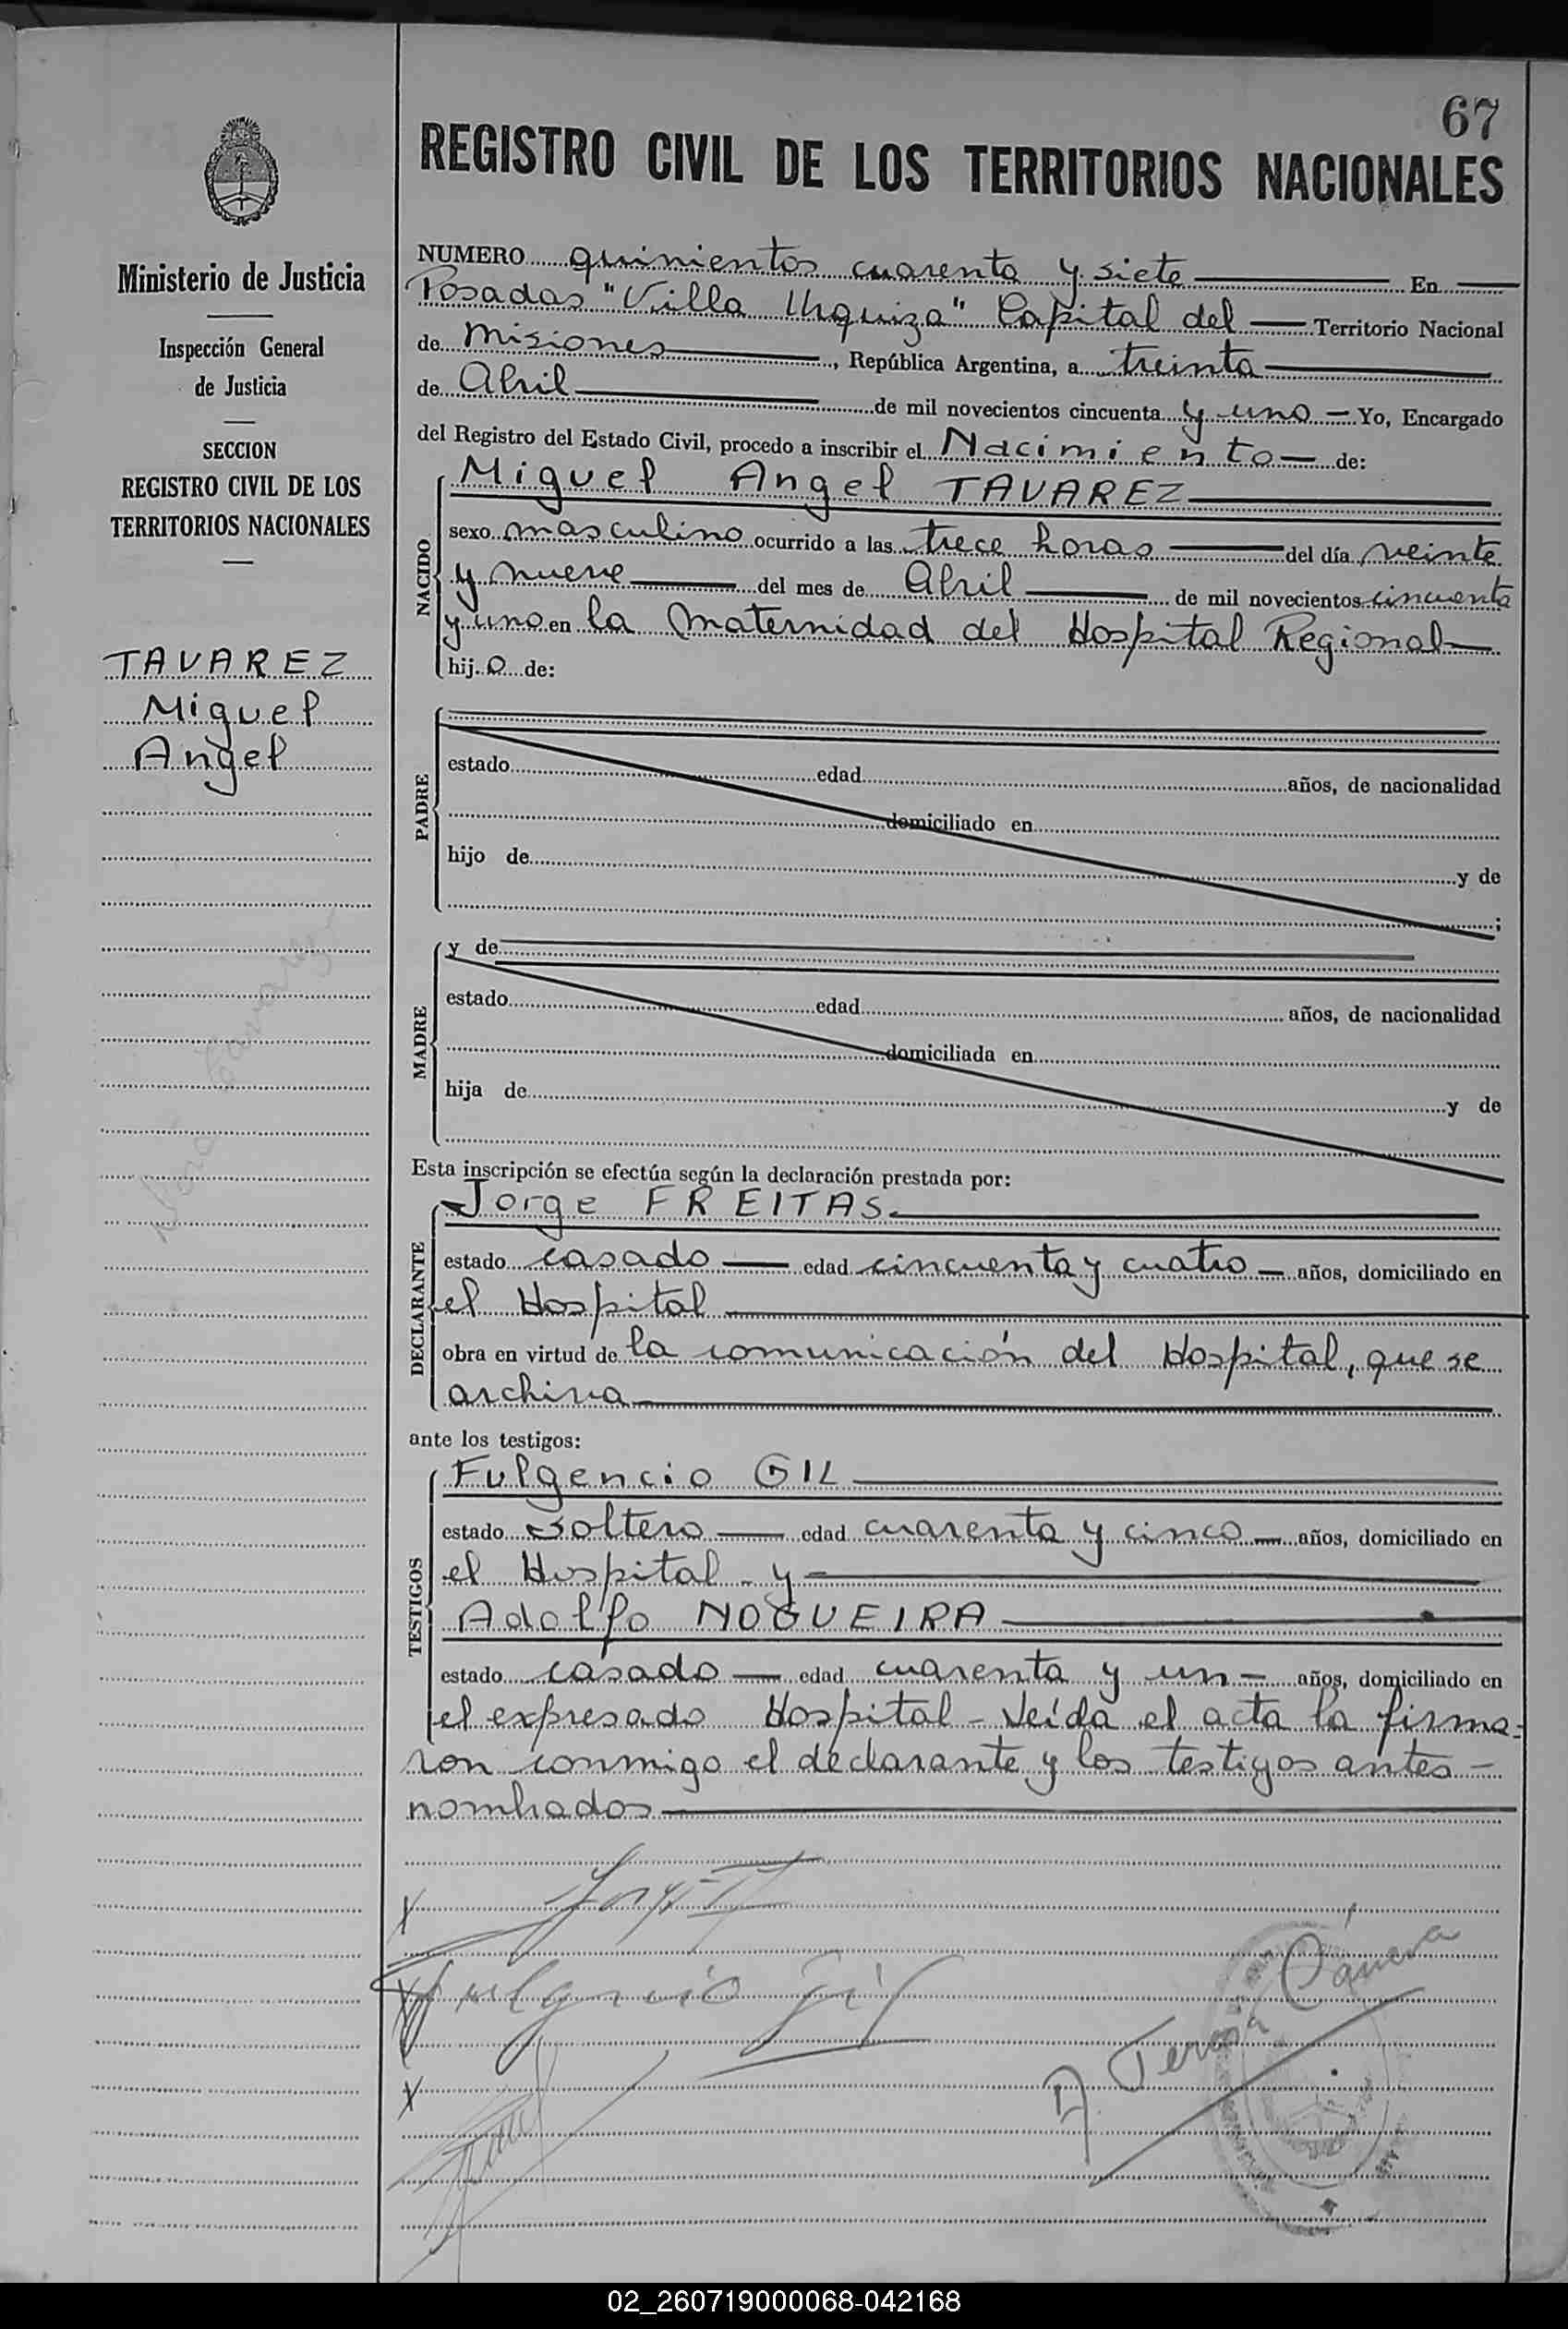 67
REGISTRO CIVIL DE LOS TERRITORIOS NACIONALES
Ministerio de Justicia
Inspección General
de Justicia
SECCION
REGISTRO CIVIL DE LOS
TERRITORIOS NACIONALES
TAVAREZ
Miguel
Angel
NUMERO quinientos cuarenta y siete En
Posadas "Villa Urquiza" Capital del Territorio Nacional
de Misiones, República Argentina, a treinta
de Abril de mil novecientos cincuenta y uno Yo, Encargado
del Registro del Estado Civil, procedo a inscribir el Nacimiento de:
NACIDO
Miguel Angel TAVAREZ
sexo masculino ocurrido a las trece horas del día veinte
y nueve del mes de Abril de mil novecientos cincuenta
y uno en la Maternidad del Hospital Regional
hijo de:
PADRE
estado edad años, de nacionalidad
domiciliado en
hijo de y de
;
MADRE
y de
estado edad años, de nacionalidad
domiciliada en
hija de y de
Esta inscripción se efectúa según la declaración prestada por:
DECLARANTE
Jorge FREITAS.
estado casado edad cincuenta y cuatro años, domiciliado en
el Hospital
obra en virtud de la comunicación del Hospital, que se
archiva
ante los testigos:
TESTIGOS
Fulgencio GIL
estado Soltero edad cuarenta y cinco años, domiciliado en
el Hospital y
Adolfo NOGUEIRA
estado casado edad cuarenta y un años, domiciliado en
el expresado Hospital - Leída el acta la firma-
ron conmigo el declarante y los testigos antes
nombrados
Fulgencio Gil
02_260719000068-042168